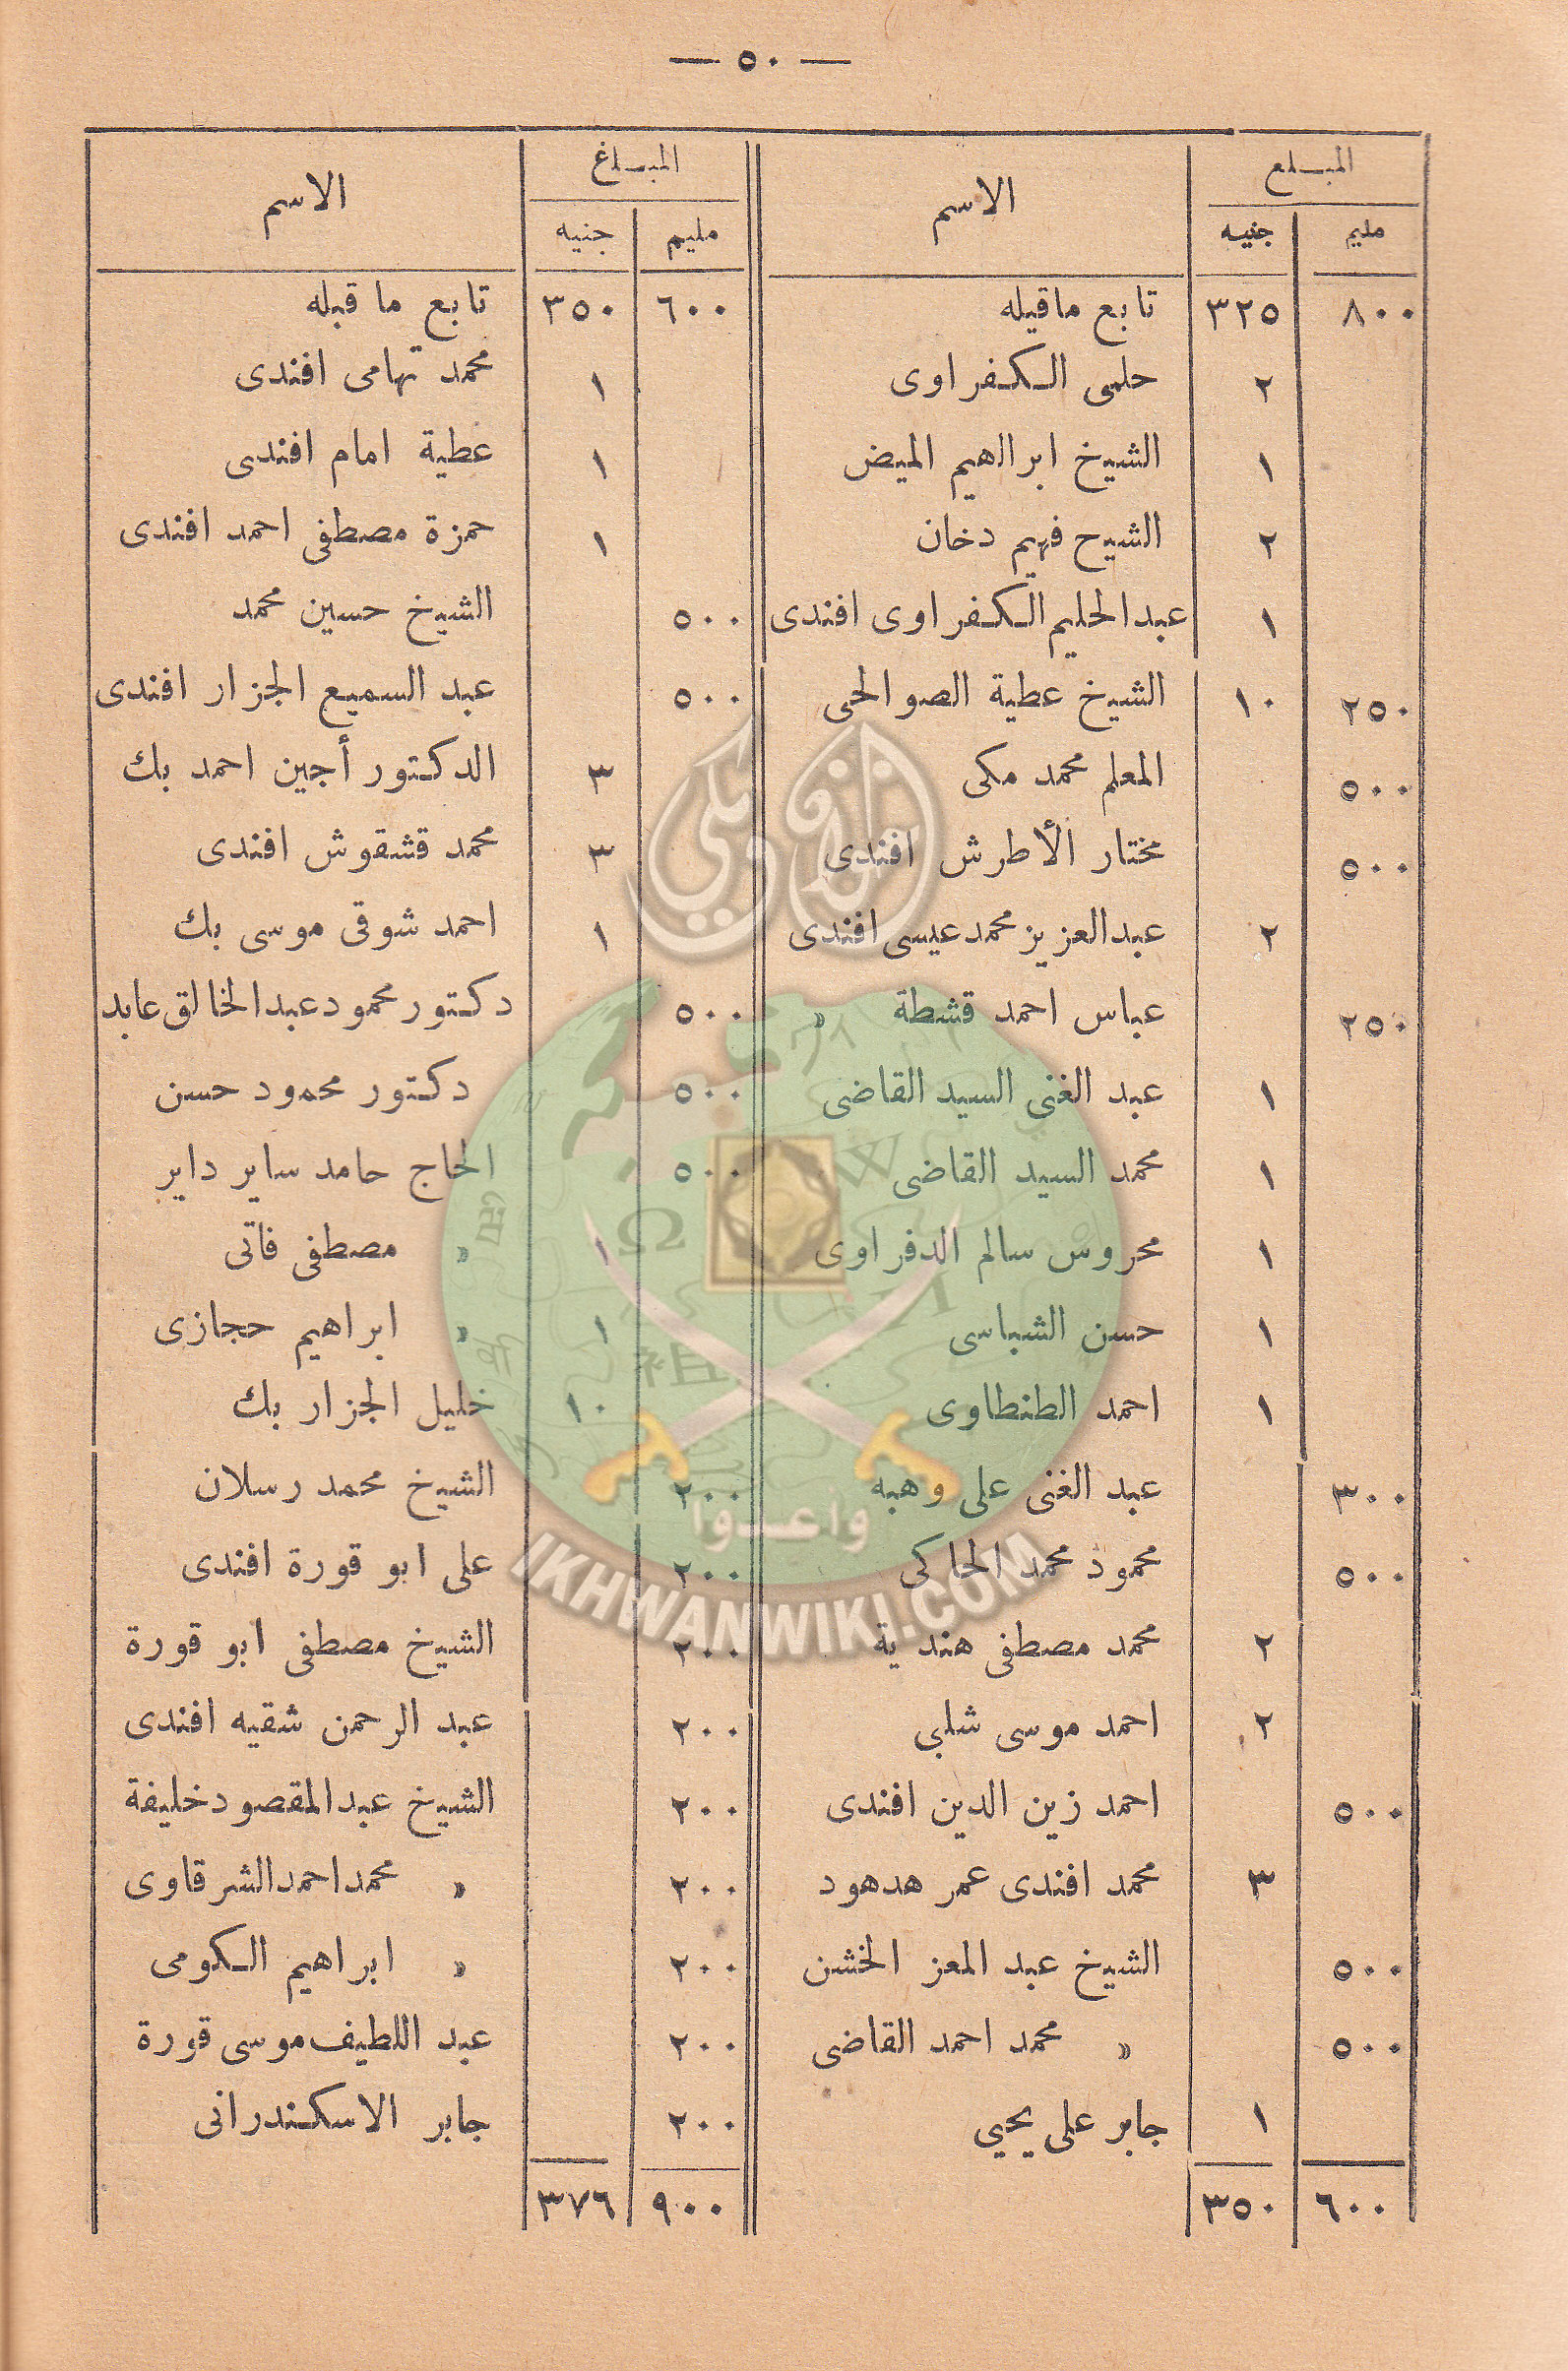 — ٥٠ —
المبـلع الاسم
مليم جنيه
٨٠٠ ٣٢٥ تابع ماقيله
٢ حلمى الكفراوى
١ الشيخ ابراهيم الميض
٢ الشيح فهيم دخان
١ عبدالحليم الكفراوى افندى
٢٥٠ ١٠ الشيخ عطية الصوالحى
٥٠٠ المعلم محمد مكى
٥٠٠ مختار الأطرش افندى
٢ عبدالعزيز محمد عيسى افندى
٢٥٠ عباس احمد قشطة »
١ عبد الغنى السيد القاضى
١ محمد السيد القاضى
١ محروس سالم الدفراوى
١ حسن الشباسى
١ احمد الطنطاوى
٣٠٠ عبد الغنى على وهبه
٥٠٠ محمود محمد الحاكى
٢ محمد مصطفى هندية
٢ احمد موسى شلبى
٥٠٠ احمد زين الدين افندى
٣ محمد افندى عمر هدهود
٥٠٠ الشيخ عبد المعز الخشن
٥٠٠ » محمد احمد القاضى
١ جابر على يحيي
٦٠٠ ٣٥٠
المبـلغ الاسم
مليم جنيه
٦٠٠ ٣٥٠ تابع ما قبله
١ محمد تهامى افندى
١ عطية امام افندى
١ حمزة مصطفى احمد افندى
٥٠٠ الشيخ حسين محمد
٥٠٠ عبد السميع الجزار افندى
٣ الدكتور أجين احمد بك
٣ محمد قشقوش افندى
١ احمد شوقى موسى بك
٥٠٠ دكتور محمود عبدالخالق عابد
٥٠٠ دكتور محمود حسن
٥٠٠ الحاج حامد ساير داير
١ » مصطفى فاتى
١ » ابراهيم حجازى
١٠ خليل الجزار بك
٢٠٠ الشيخ محمد رسلان
٢٠٠ على ابو قورة افندى
٢٠٠ الشيخ مصطفى ابو قورة
٢٠٠ عبد الرحمن شقيه افندى
٢٠٠ الشيخ عبدالمقصود خليفة
٢٠٠ » محمد احمد الشرقاوى
٢٠٠ » ابراهيم الكومى
٢٠٠ عبد اللطيف موسى قورة
٢٠٠ جابر الاسكندرانى
٩٠٠ ٣٧٦
وأعدوا
IKHWANWIKI.COM